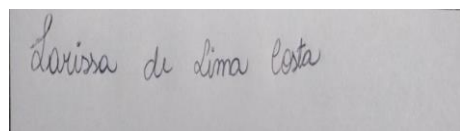 Larissa de Lima Costa